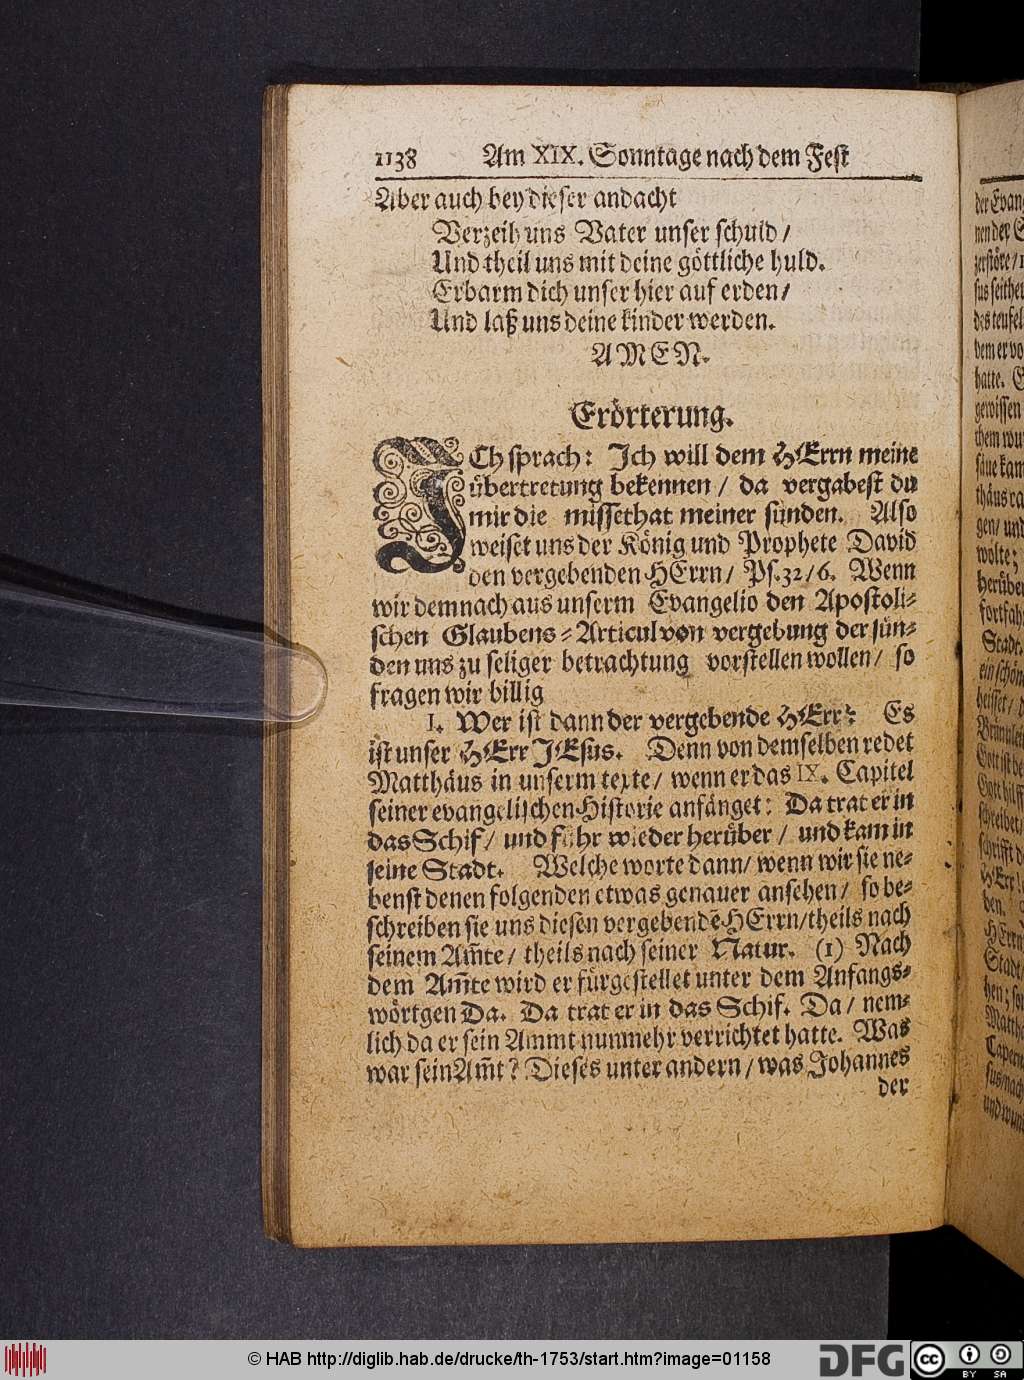 1138 Am XIX. Sonntage nach dem Fest
Aber auch bey dieser andacht
Verzeih uns Vater unser schuld /
Und theil uns mit deine göttliche huld.
Erbarm dich unser hier auf erden /
Und laß uns deine kinder werden.
AMEN.
Erörterung.
ICh sprach: Ich will dem HErrn meine
übertretung bekennen / da vergabest du
mir die missethat meiner sünden. Also
weiset uns der König und Prophete David
den vergebenden HErrn / Ps. 32 / 6. Wenn
wir demnach aus unserm Evangelio den Apostoli-
schen Glaubens-Articul von vergebung der sün-
den uns zu seliger betrachtung vorstellen wollen / so
fragen wir billig
I. Wer ist dann der vergebende HErr? Es
ist unser HErr JEsus. Denn von demselben redet
Matthäus in unserm texte / wenn er das IX. Capitel
seiner evangelischen Historie anfänget: Da trat er in
das Schif / und fuhr wieder herüber / und kam in
seine Stadt. Welche worte dann / wenn wir sie ne-
benst denen folgenden etwas genauer ansehen / so be-
schreiben sie uns diesen vergebendē HErrn / theils nach
seinem Am̃te / theils nach seiner Natur. (1) Nach
dem Am̃te wird er fürgestellet unter dem Anfangs-
wörtgen Da. Da trat er in das Schif. Da / nem-
lich da er sein Ammt nunmehr verrichtet hatte. Was
war sein Am̃t? Dieses unter andern / was Johannes
der
der Evan
zerstöre /
des teufel
dem er vo
hatte.
gewissen
them wu
wolte;
herüber
fortfah
Stadt.
ein schön
Gott ist be
Gott hilff
schreibet /
HErr
den.
HErrn
Stadt
Matth
Caper
© HAB http://diglib.hab.de/drucke/th-1753/start.htm?image=01158
DFG
cc
BY SA